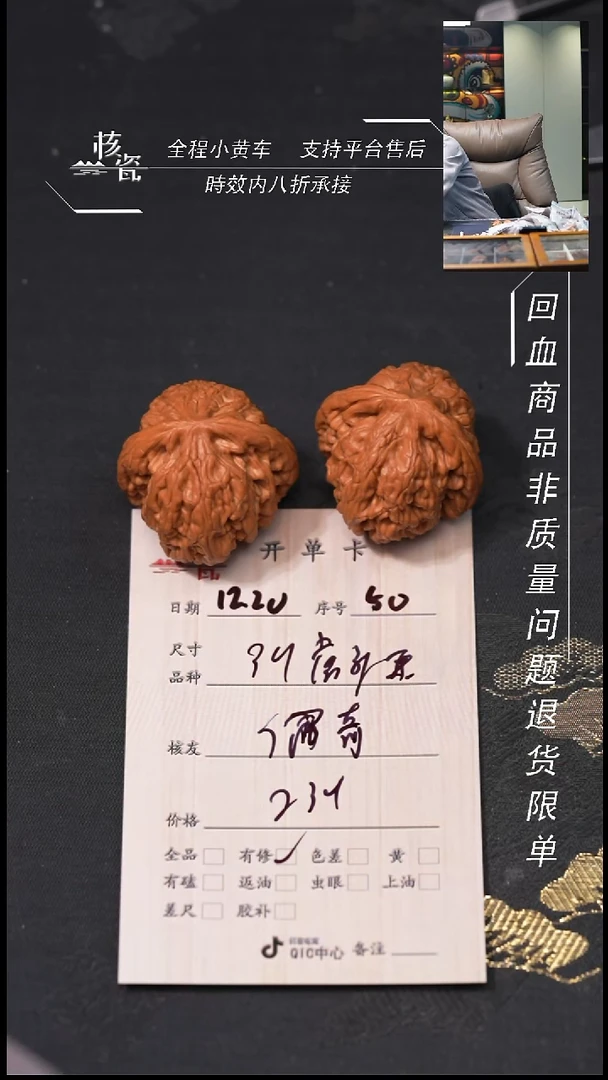 核瓷
全程小黄车 支持平台售后
時效内八折承接
回血商品非质量问题退货限单
开单卡
日期 1220 序号 50
尺寸
品种
核友
价格
全品 有修 色差 黄
有磕 返油 虫眼 上油
差尺 胶补
QIC中心 备注